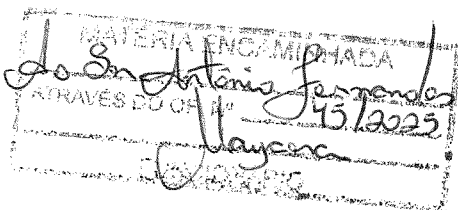 MATÉRIA ENCAMINHADA
Ao Sr. Antônio Fernandes
ATRAVÉS DO OF. Nº 45/2025
Mayara